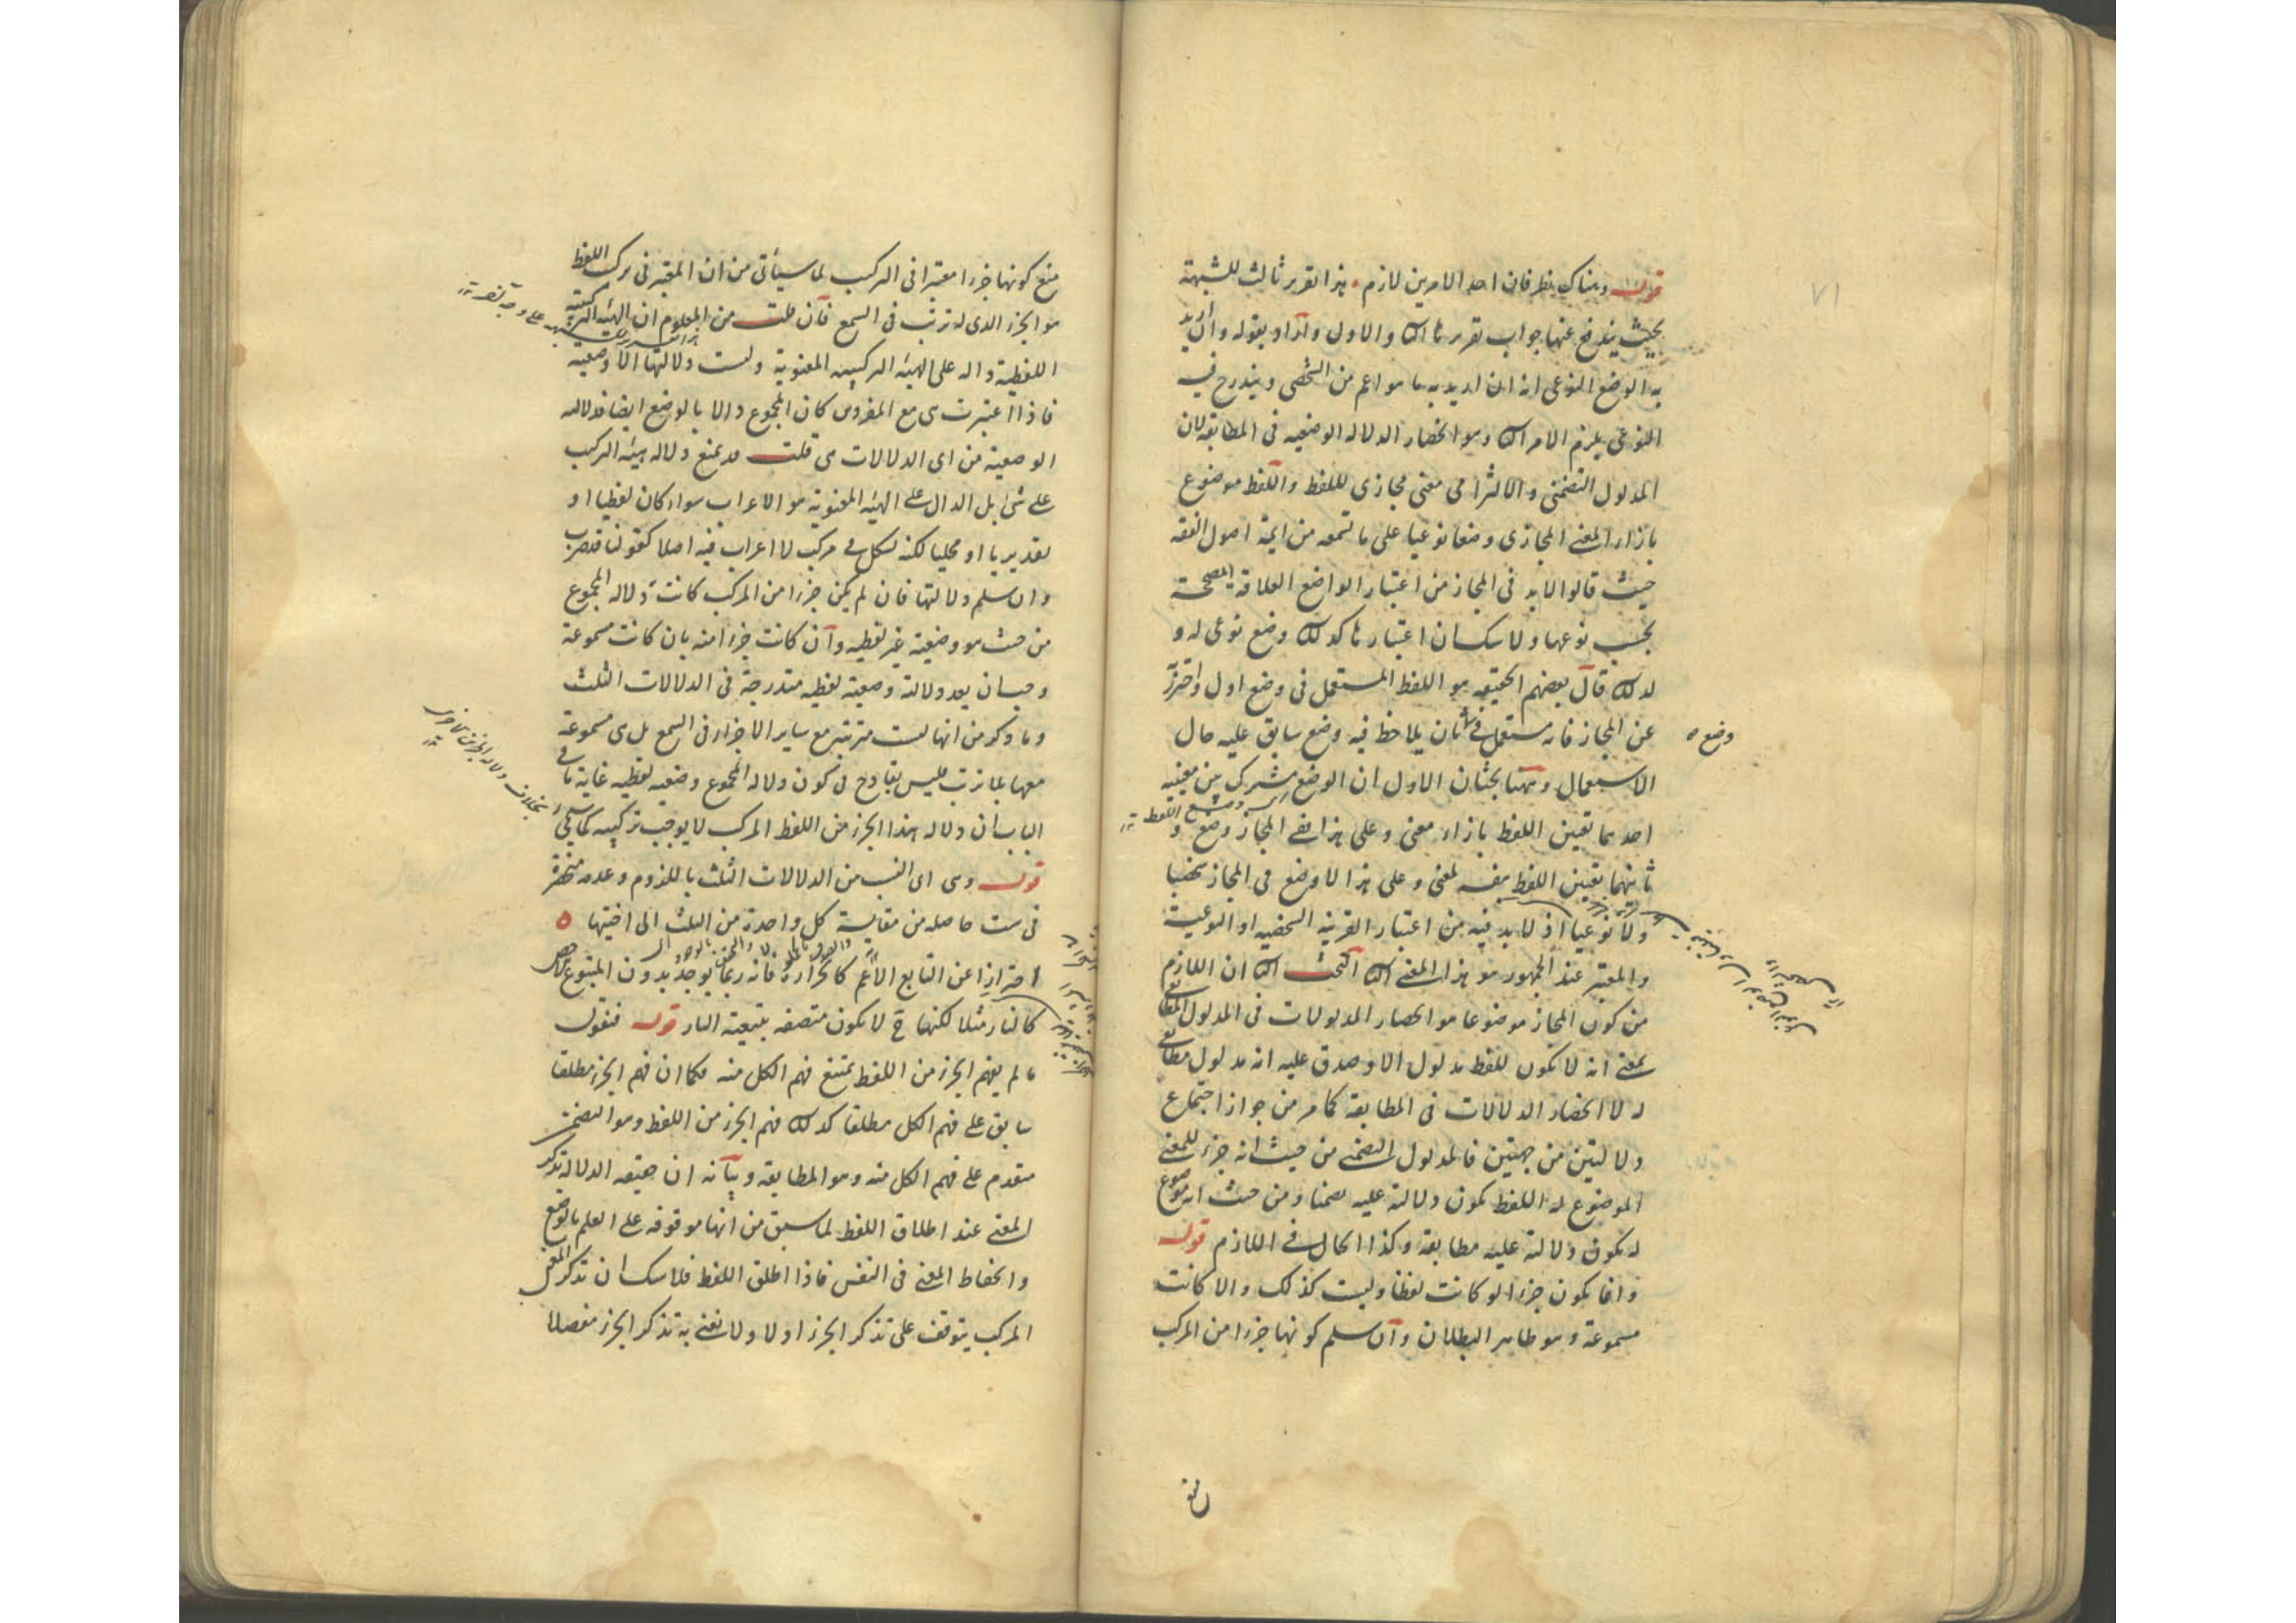 ٧١
قوله وهناك نظر فان احد الامرين لازم هذا تقرير ثالث للشبهة
بحيث يندفع عنها جواب تقرير الثانى والاول واراد بقوله وان اريد
به الوضع النوعى انه ان اريد به ما هو اعم من الشخصى ويندرج فيه
النوعى يلزم الامر الثانى وهو انحصار الدلالة الوضعيه فى المطابقة لان
المدلول التضمنى والالتزامى معنى مجازى للفظ واللفظ موضوع
بازاء المعنى المجازى وضعا نوعيا على ما تسمعه من ايمة اصول الفقه
حيث قالوا لابد فى المجاز من اعتبار الواضع العلاقة المصححة
بحسب نوعها ولا شك ان اعتبارها كذلك وضع نوعى له و
لذلك قال بعضهم الحقيقه هو اللفظ المستعمل فى وضع اول واحترز
عن المجاز فانه مستعمل فى ثان يلاحظ فيه وضع سابق عليه حال
وضع
الاستعمال وههنا بحثان الاول ان الوضع مشترك بين معنيين
احدهما تعيين اللفظ بازاء معنى وعلى هذا ففى المجاز وضع و
ثانيهما تعيين اللفظ بنفسه لمعنى وعلى هذا لا وضع فى المجاز شخصيا
ولا نوعيا اذ لابد فيه من اعتبار القرينة الشخصيه او النوعية
والمعتبر عند الجمهور هو هذا المعنى الثانى البحث الثانى ان اللازم
من كون المجاز موضوعا هو انحصار المدلولات فى المدلول المطابقى
بمعنى انه لا يكون للفظ مدلول الا وصدق عليه انه مدلول مطابقى
له لا انحصار الدلالات فى المطابقة كما مر من جواز اجتماع
دلالتين من جهتين فالمدلول التضمنى من حيث انه جزء للمعنى
الموضوع له اللفظ يكون دلالته عليه تضمنا ومن حيث انه موضوع
له يكون دلالته عليه مطابقة وكذا الحال فى اللازم قوله
وانما يكون جزءا لو كانت لفظا وليست كذلك والا كانت
مسموعة وهو ظاهر البطلان وان سلم كونها جزءا من المركب
منع كونها جزءا معتبرا فى التركيب لما سيأتى من ان المعتبر فى تركيب اللفظ
هو الجزء الذى له ترتب فى السمع فان قلت من المعلوم ان الهيئة التركيبية
اللفظية دالة على الهيئة التركيبيه المعنوية وليست دلالتها الا وضعية
فاذا اعتبرت هى مع المفردين كان المجموع دالا بالوضع ايضا فدلالته
الوضعية من اى الدلالات هى قلت قد يمنع دلالة هيئة التركيب
على شئ بل الدال على الهيئة المعنوية هو الاعراب سواء كان لفظيا او
تقديريا او محليا لكنه يشكل فى مركب لا اعراب فيه اصلا كقولنا قد ضرب
وان سلم دلالتها فان لم يكن جزءا من المركب كانت دلالة المجموع
من حيث هو وضعية غير لفظيه وان كانت جزءا منه بان كانت مسموعة
وجب ان يعد دلالته وضعية لفظيه مندرجة فى الدلالات الثلث
وما ذكر من انها ليست مترتبة مع ساير الاجزاء فى السمع بل هى مسموعة
معها بلا ترتب فليس بقادح فى كون دلالة المجموع وضعيه لفظيه غاية ما فى
الباب ان دلالة هذا الجزء من اللفظ المركب لا يوجب تركيبه كما سيجئ
قوله وهى اى النسب من الدلالات الثلث باللزوم وعدمه منحصرة
فى ست حاصله من مقايسة كل واحدة من الثلث الى اختيها
احترازا عن التابع الاعم كالحرارة فانه ربما يوجد بدون المتبوع
كالنار مثلا لكنها ح لا يكون متصفه بتبعية النار قوله فنقول
ما لم يفهم الجزء من اللفظ يمتنع فهم الكل منه فكما ان فهم الجزء مطلقا
سابق على فهم الكل مطلقا كذلك فهم الجزء من اللفظ وهو التضمن
متقدم على فهم الكل منه وهو المطابقة وبيانه ان حقيقه الدلالة تذكر
المعنى عند اطلاق اللفظ لما سبق من انها موقوفه على العلم بالوضع
وانحفاظ المعنى فى النفس فاذا اطلق اللفظ فلا شك ان تذكر المعنى
المركب يتوقف على تذكر الجزء اولا ولا نعنى به تذكر الجزء مفصلا